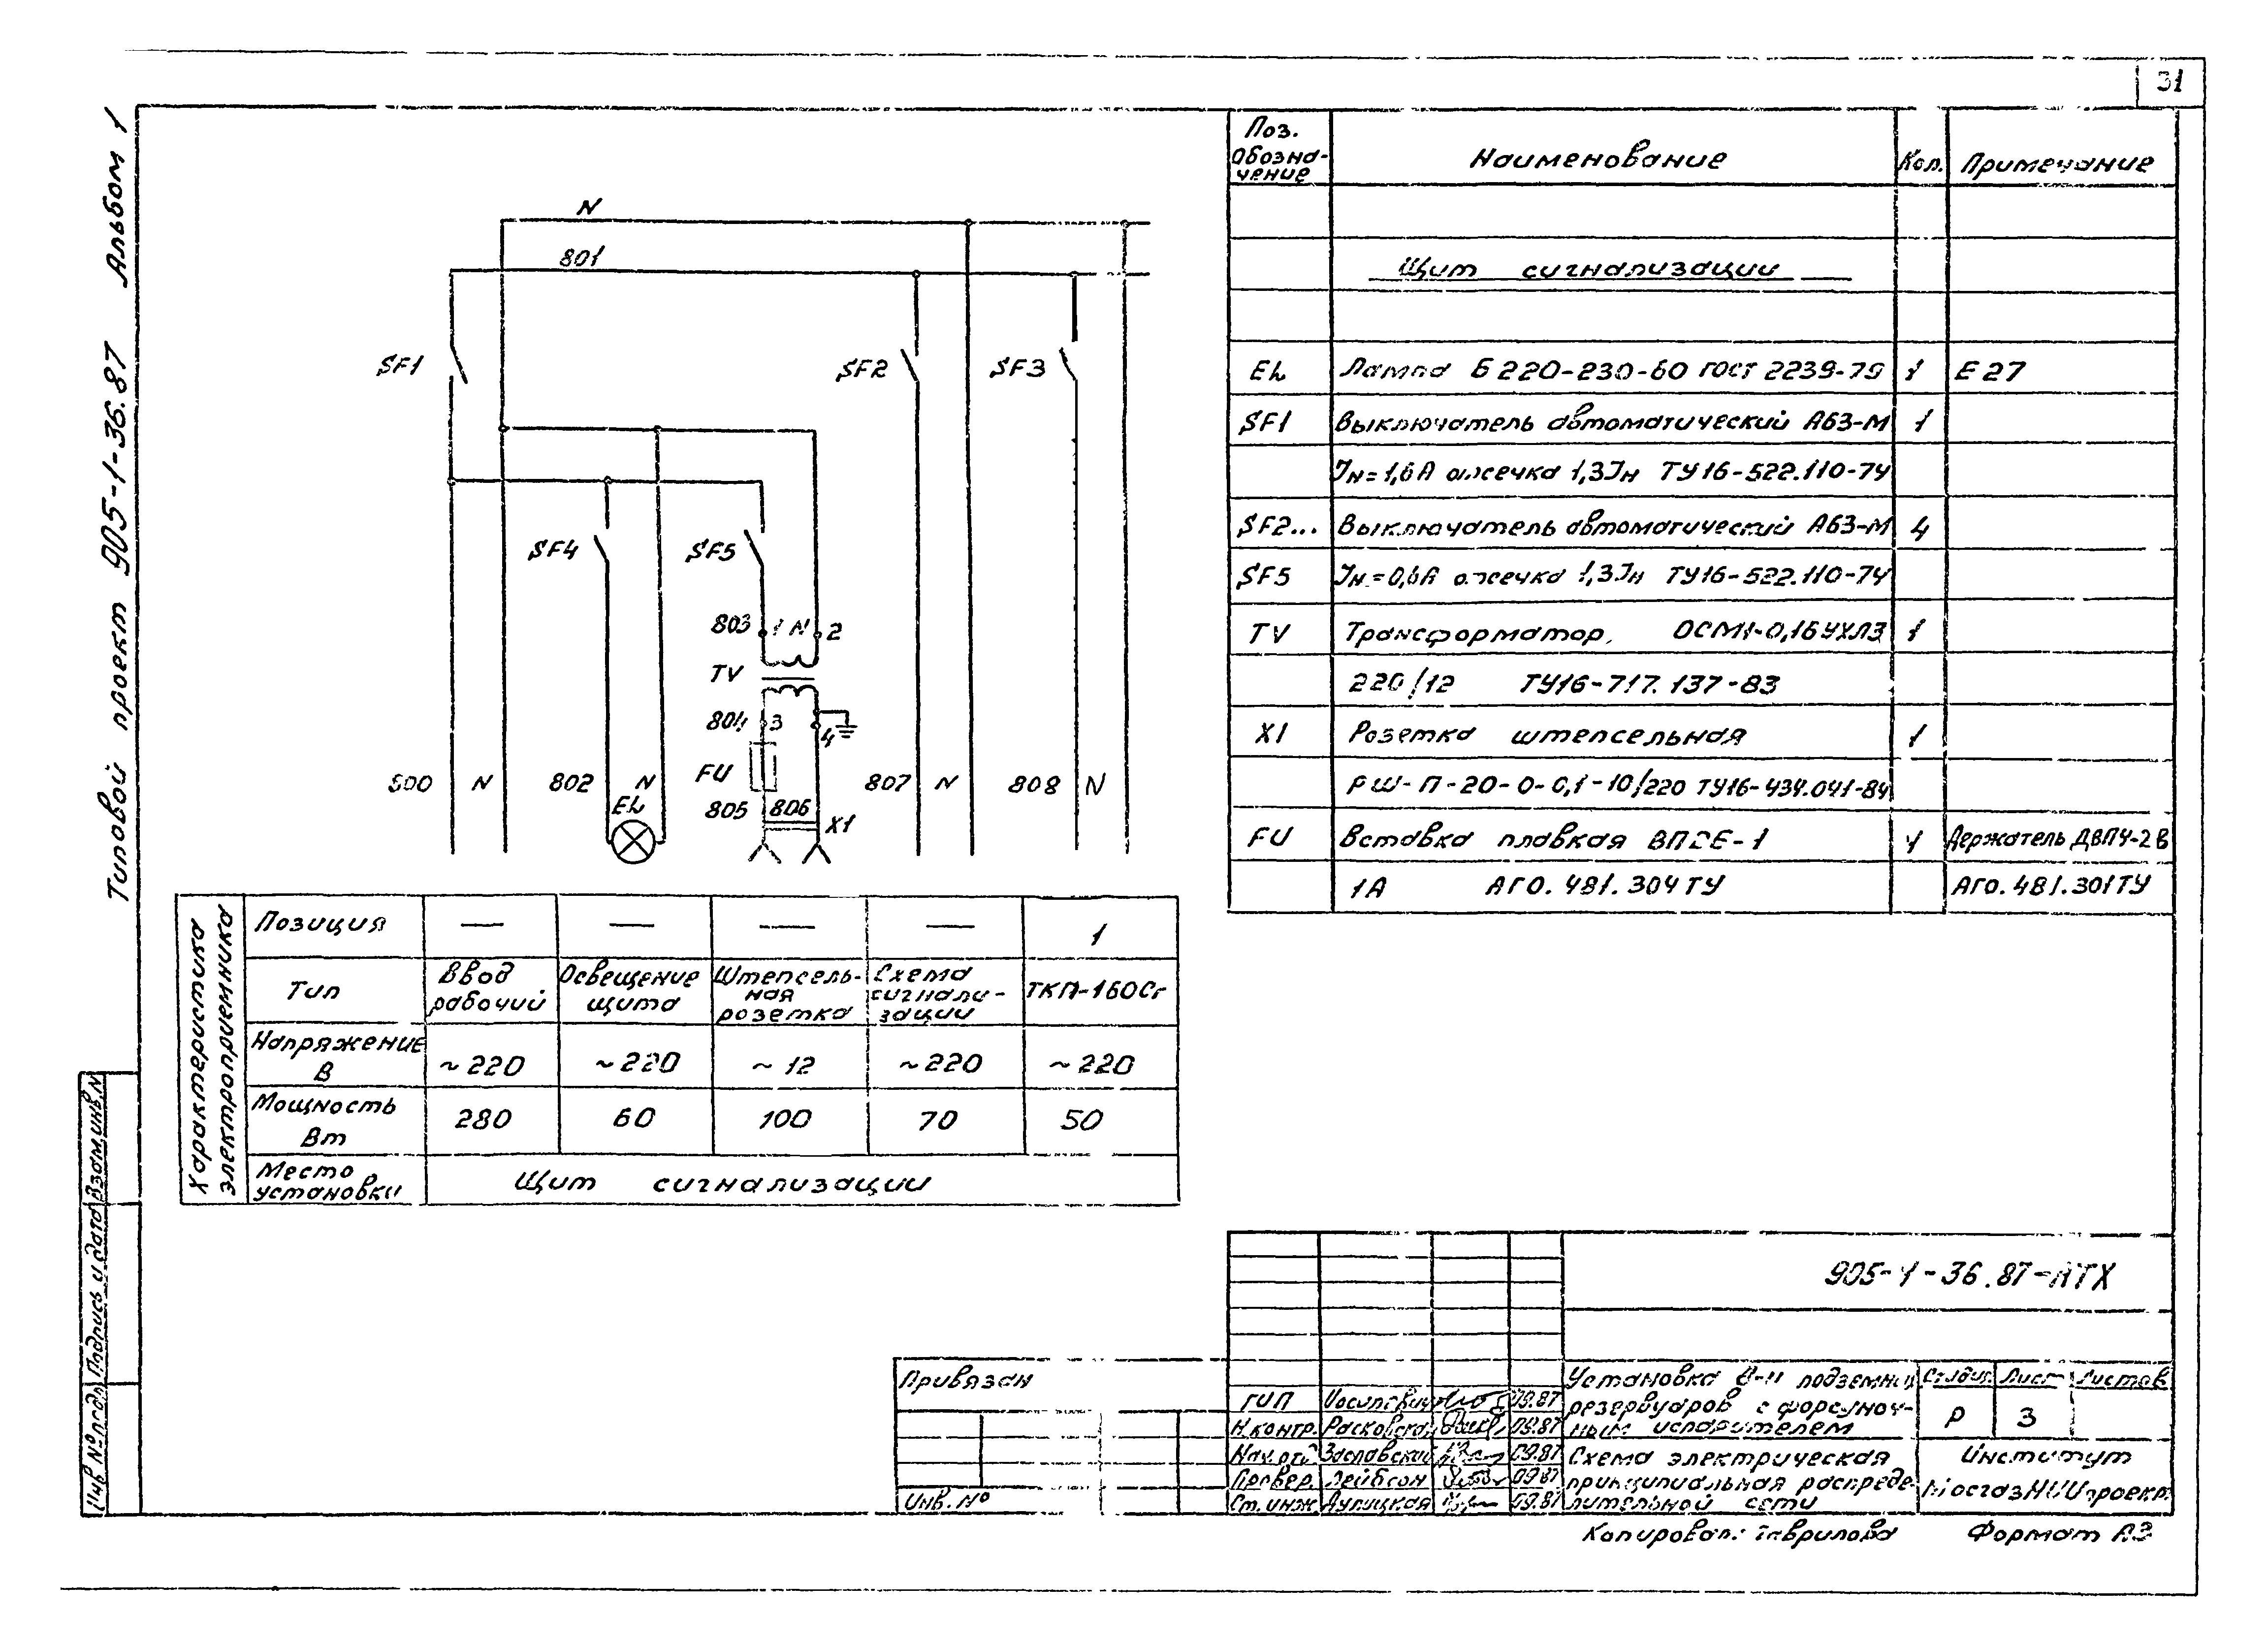 31
Типовой проект 905-1-36.87 Альбом 1
N
801
SF1
SF2
SF3
SF4
SF5
803 1 N 2
TV
804 3
4
FU
800 N 802 N 807 N 808 N
EL
805 806
X1
Поз. обозначение Наименование Кол. Примечание
Щит сигнализации
EL Лампа Б 220-230-60 ГОСТ 2239-79 1 E27
SF1 Выключатель автоматический А63-М 1
Iн=1,6А отсечка 1,3Iн ТУ16-522.110-74
SF2... Выключатель автоматический А63-М 4
SF5 Iн.=0,6А отсечка 1,3Iн ТУ16-522.110-74
TV Трансформатор, ОСМ1-0,16УХЛ3 1
220/12 ТУ16-717.137-83
X1 Розетка штепсельная 1
РШ-П-20-0-0,1-10/220 ТУ16-434.041-84
FU Вставка плавкая 1
Держатель ДВП4-2В
1А АГО.481.304ТУ АГО.481.301ТУ
Характеристика электроприемника
Позиция — — — — 1
Тип
Ввод рабочий
Освещение щита
Штепсель-
ная
розетка
Схема
сигнали-
зации
ТКП-160Сг
Напряжение
В ~220 ~220 ~12 ~220 ~220
Мощность
Вт 280 60 100 70 50
Место
установки Щит сигнализации
Взам.инв.N
Подпись и дата
Инв.N°подл.
905-1-36.87-АТХ
Привязан
Инв.N°
ГИП 09.87
Н.контр. 09.87
Нач.отд. Заславский 09.87
Провер. Лейбсон 09.87
Ст.инж. 09.87
Установка подземных
резервуаров с форсуноч-
ным испарителем
Стадия Лист Листов
Р 3
Схема электрическая
принципиальная распреде-
лительной сети
Институт
МосгазНИИпроект
Копировал: Гаврилова Формат А3